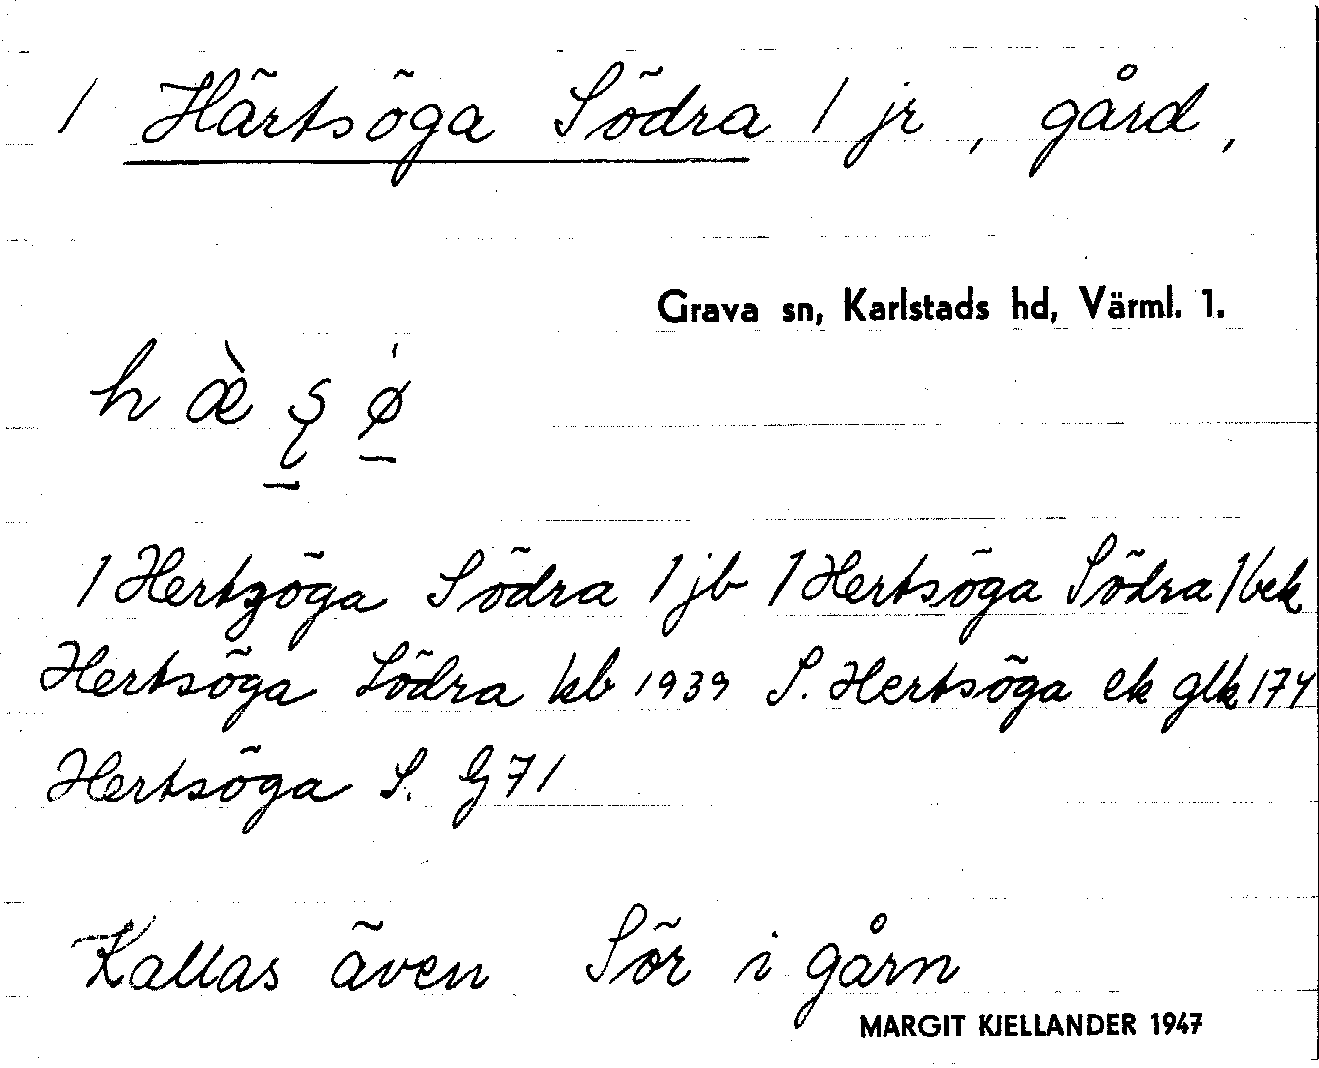 / Härtsöga Södra / jr, gård,
Grava sn, Karlstads hd, Värml. 1.
/ Hertzöga Södra / jb / Hertsöga Södra / bek
Hertsöga Södra kb 1939 S. Hertsöga ek glk 174
Hertsöga S. G 71
Kallas även Sör i gårn
MARGIT KJELLANDER 1947